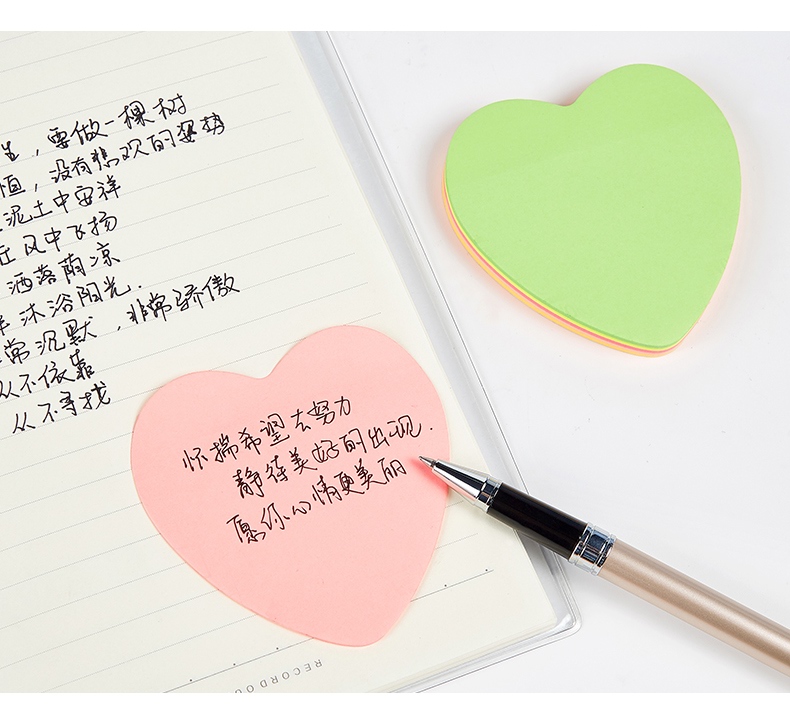 生，要做一棵树
恒，没有悲欢的姿势
泥土中安祥
在风中飞扬
洒落荫凉
沐浴阳光.
常沉默，非常骄傲
从不依靠
从不寻找
怀揣希望去努力
静待美好的出现.
愿你心情更美丽
RECORD OU